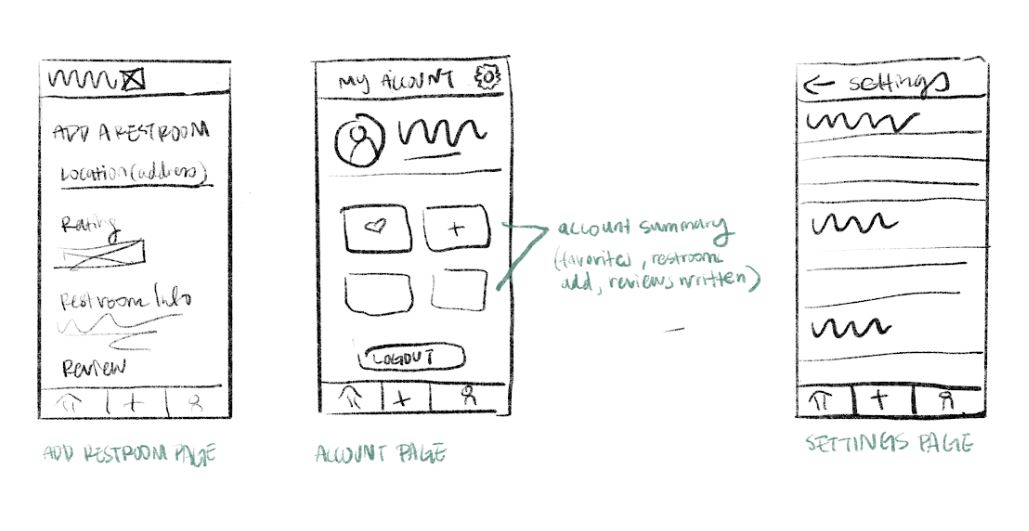 ADD A RESTROOM
Location (address)
Rating
Restroom Info
Review
ADD RESTROOM PAGE
MY ACCOUNT
LOGOUT
ACCOUNT PAGE
account summary
(favorites, restroom
add, reviews written)
← settings
SETTINGS PAGE